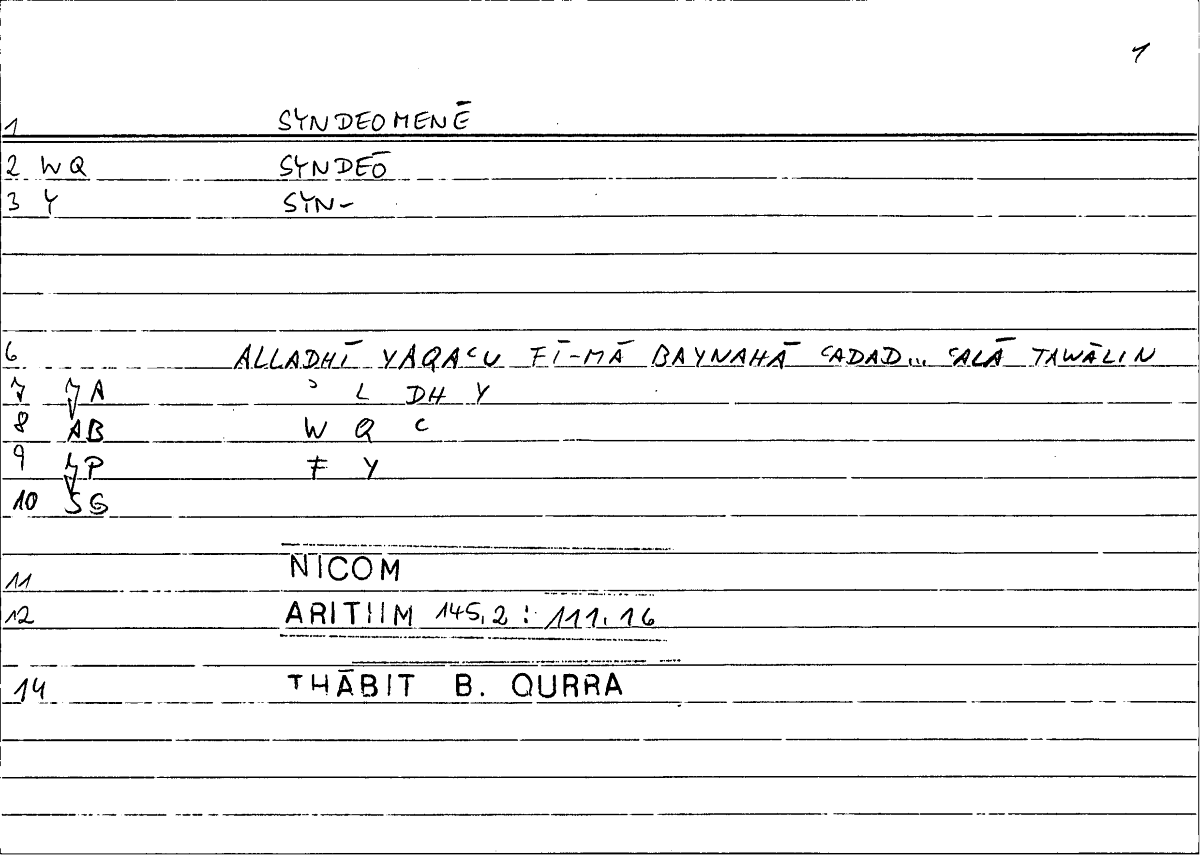 1
1 SYNDEOMENĒ
2 WQ SYNDEŌ
3 Y SYN-
6 ALLADHĪ YAQAʿU FĪ-MĀ BAYNAHĀ ʿADAD... ʿALĀ TAWĀLIN
7 A ʾ L DH Y
8 AB W Q ʿ
9 P F Y
10 SG
11 NICOM
12 ARITIIM 145,2 : 111,16
14 THĀBIT B. QURRA